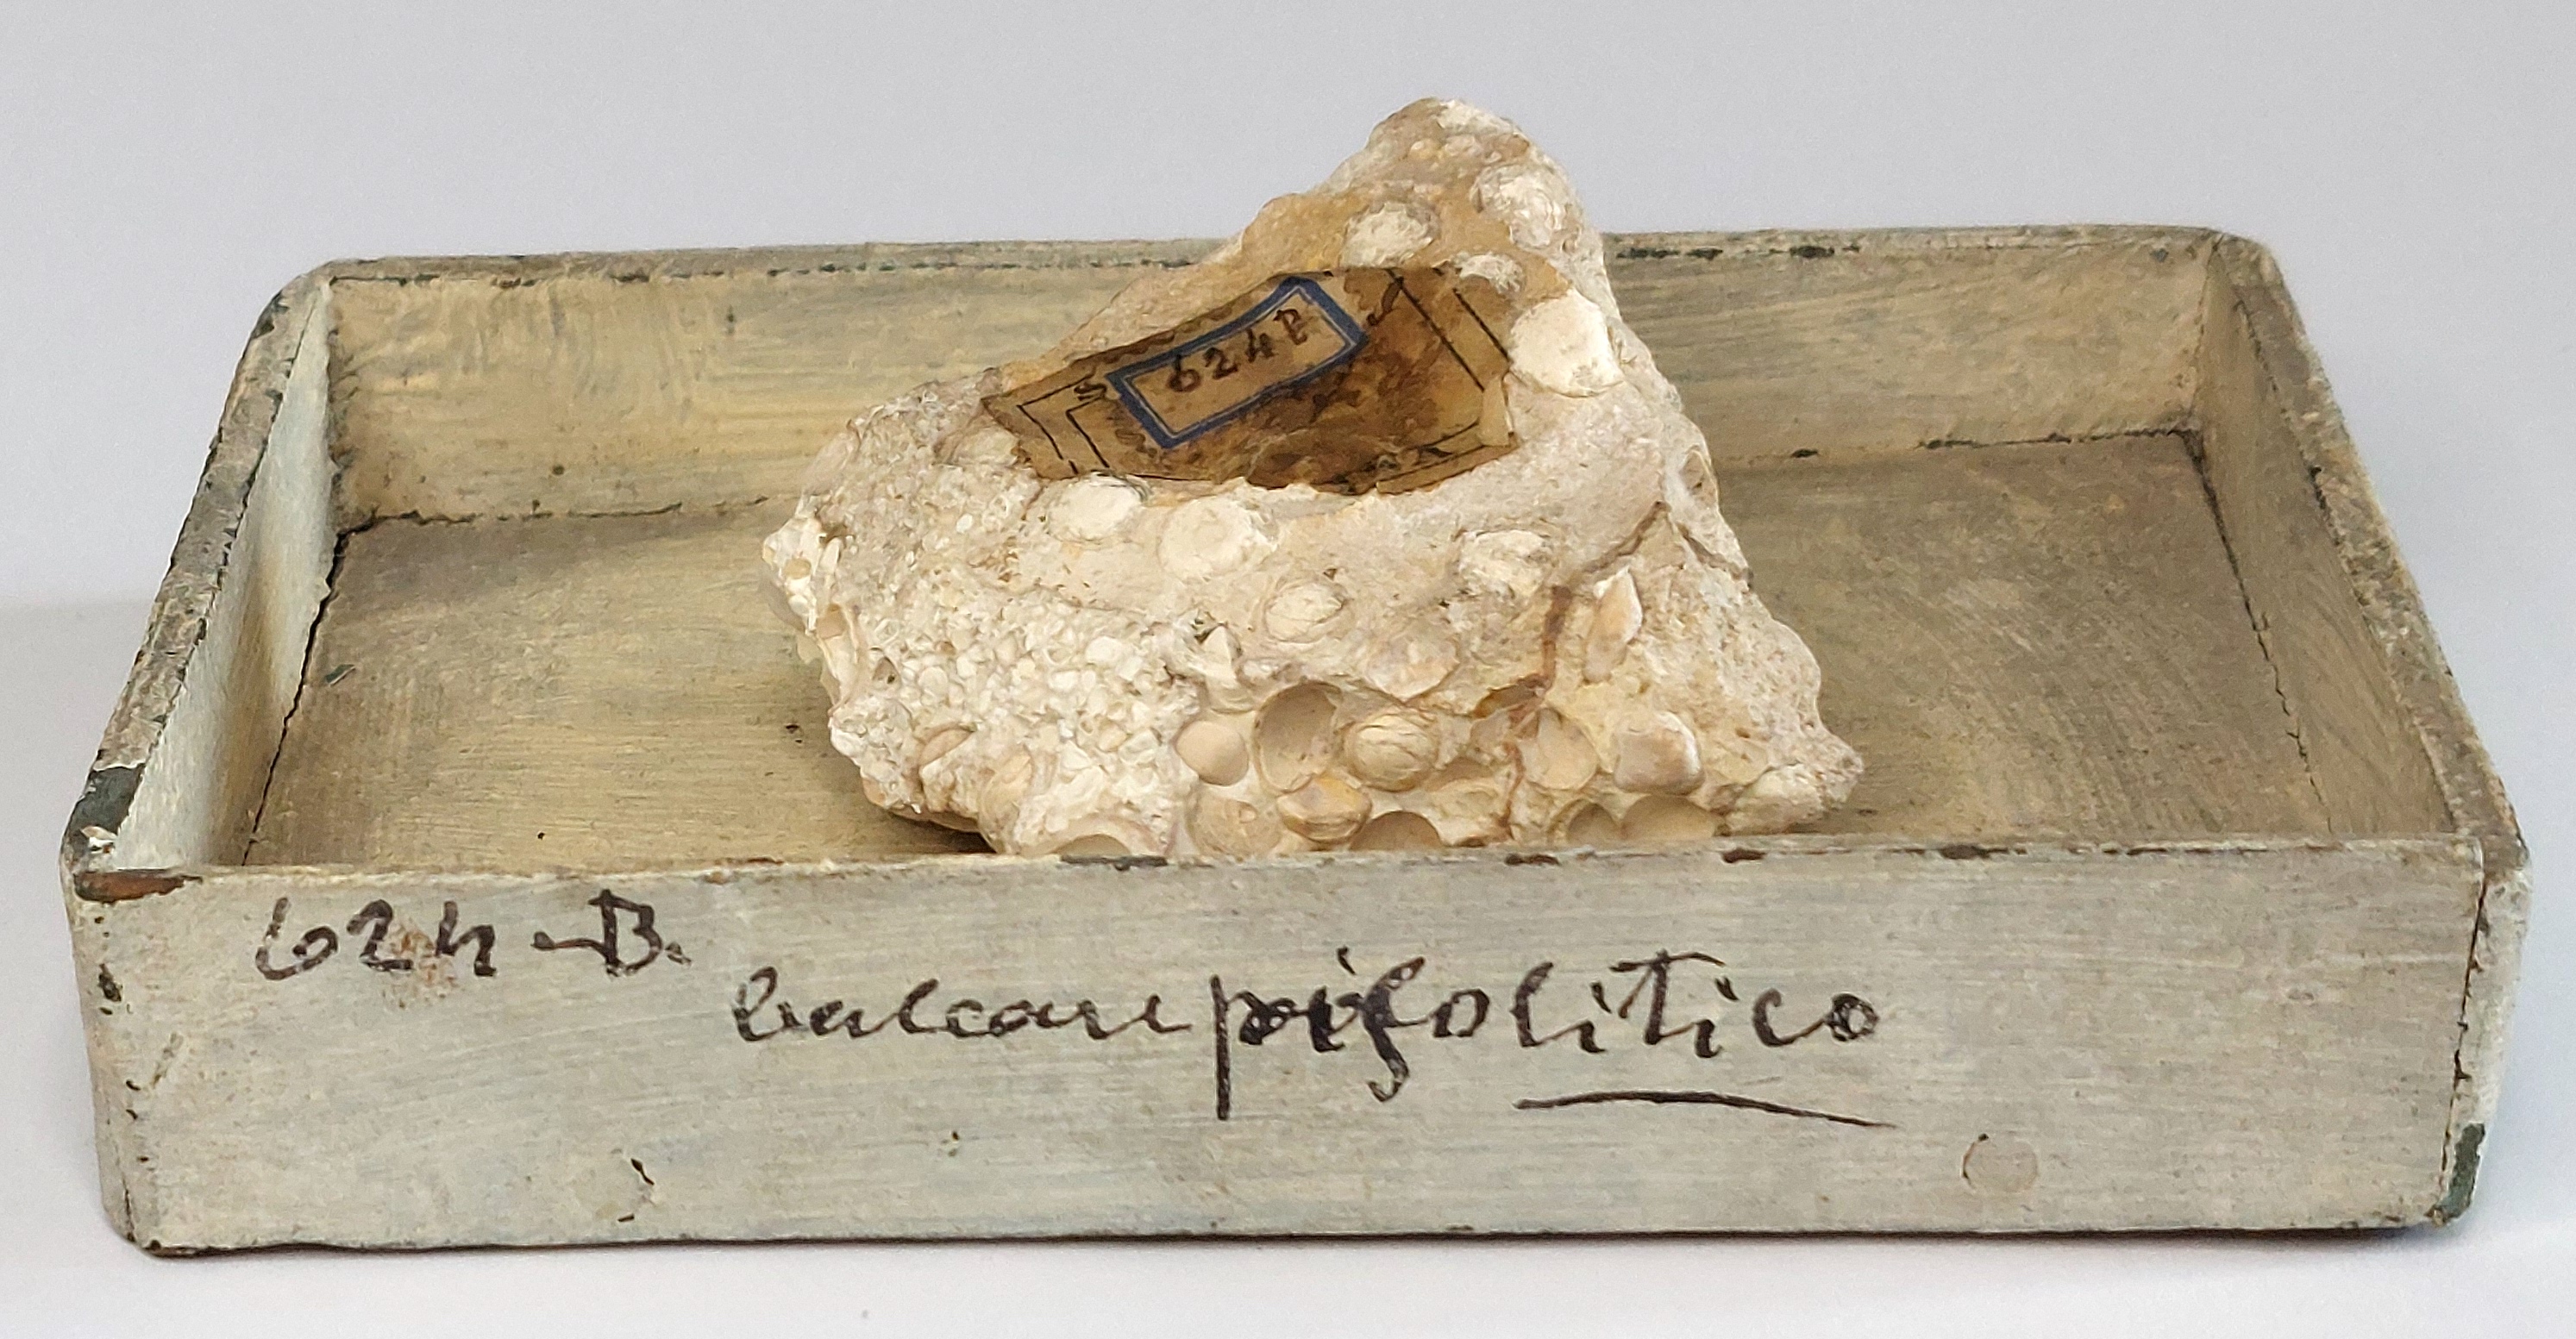 624B
624-B.
calcare pisolitico